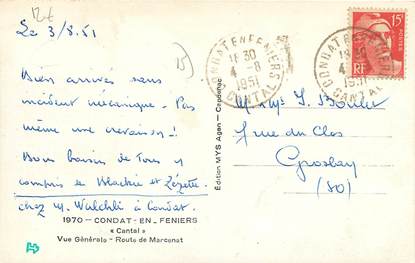 12€
15)
Le 3/8.51
Bien arrivés sans
incident mécanique. Pas
même une crevaison !
Bons baisers de Tous y
compris de Blackie et Zézette.
chez M. Walchli à Condat.
1970 - CONDAT-EN-FENIERS
« Cantal »
Vue Générale - Route de Marcenat
Edition MYS Agen - Capdenac
CONDAT EN FENIERS
18 30
4 - 8
1951
CANTAL
CONDAT EN FENIERS
18 30
4 - 8
1951
CANTAL
15F
RF
rue du Clos
Groslay
(SO)